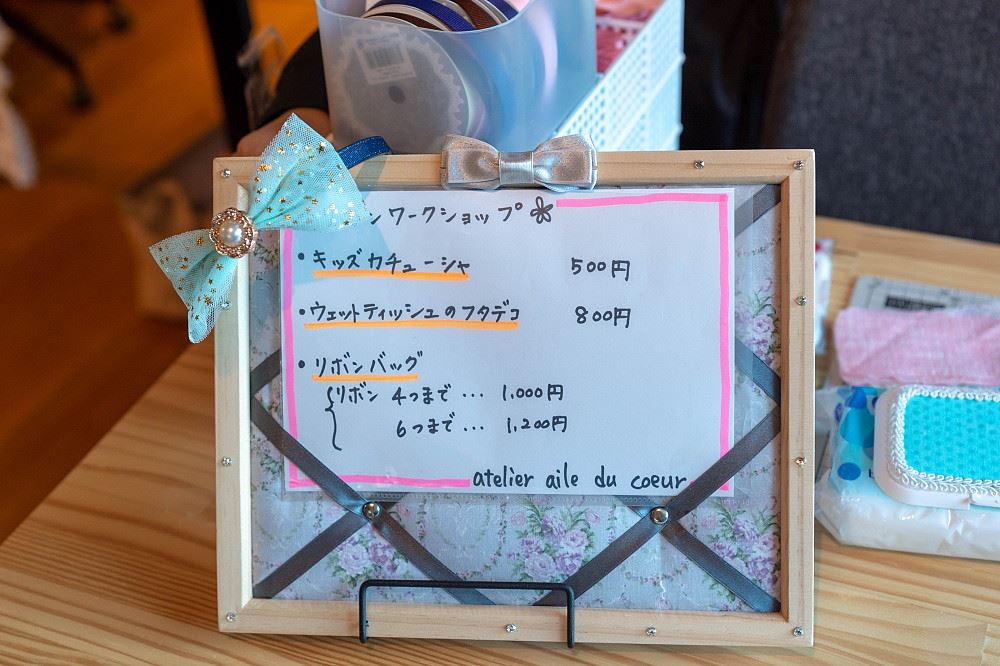 ンワークショップ
・キッズカチューシャ 500円
・ウェットティッシュのフタデコ 800円
・リボンバッグ
リボン 4つまで... 1,000円
6つまで... 1,200円
atelier aile du coeur